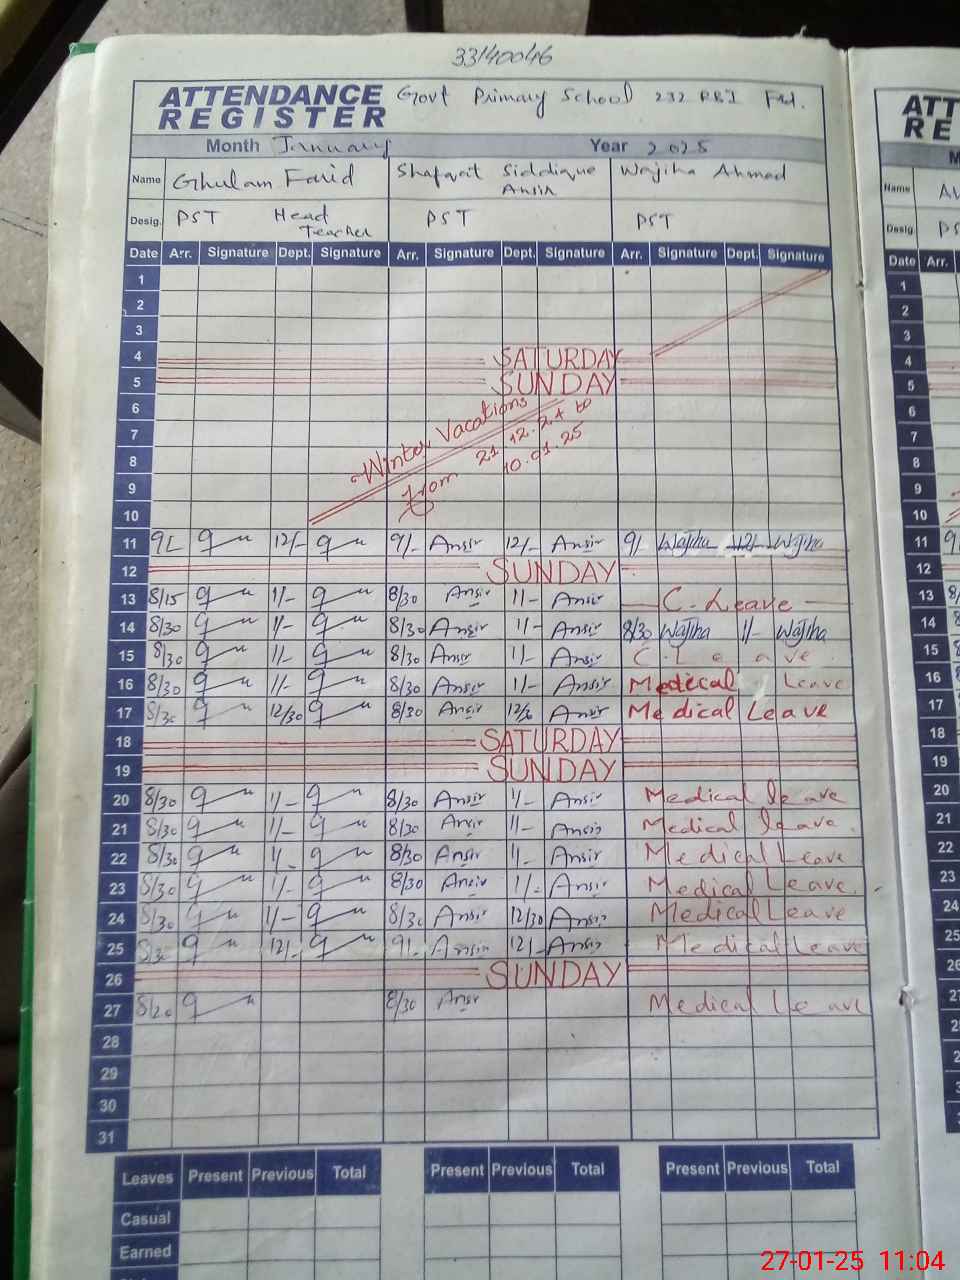 33140046
ATTENDANCE REGISTER Govt Primary School 232 RBI Fsd.
Month January Year 2025
Name Ghulam Farid Shafqat Siddique Ansir Wajiha Ahmad
Desig. PST Head Teacher PST PST
Date Arr. Signature Dept. Signature Arr. Signature Dept. Signature Arr. Signature Dept. Signature
1
2
3
4 SATURDAY
5 SUNDAY
6
7
8
9
10
Winter Vacations
From 21.12.24 to
10.01.25
11 9/- 12/- 9/- Ansir 12/- Ansir 9/- Wajiha 12/- Wajiha
12 SUNDAY
13 8/15 1/- 8/30 Ansir 1/- Ansir C. Leave
14 8/30 1/- 8/30 Ansir 1/- Ansir 8/30 Wajiha 1/- Wajiha
15 8/30 1/- 8/30 Ansir 1/- Ansir C. Leave
16 8/30 1/- 8/30 Ansir 1/- Ansir Medical Leave
17 8/30 12/30 8/30 Ansir Ansir Medical Leave
18 SATURDAY
19 SUNDAY
20 8/30 1/- 8/30 Ansir 1/- Ansir Medical leave
21 8/30 1/- 8/30 Ansir 1/- Ansir Medical leave
22 8/30 1/- 8/30 Ansir 1/- Ansir Medical Leave
23 8/30 1/- 8/30 Ansir 1/- Ansir Medical Leave
24 8/30 1/- 8/30 Ansir 12/30 Ansir Medical Leave
25 8/30 12/- 9/- Ansir 12/- Ansir Medical Leave
26 SUNDAY
27 8/20 8/30 Ansir Medical Leave
28
29
30
31
Leaves Present Previous Total Present Previous Total Present Previous Total
Casual
Earned
ATT
RE
M
Name
Desig.
Date Arr.
1
2
3
4
5
6
7
8
9
10
11
12
13
14
15
16
17
18
19
20
21
22
23
24
25
26
27
27-01-25 11:04